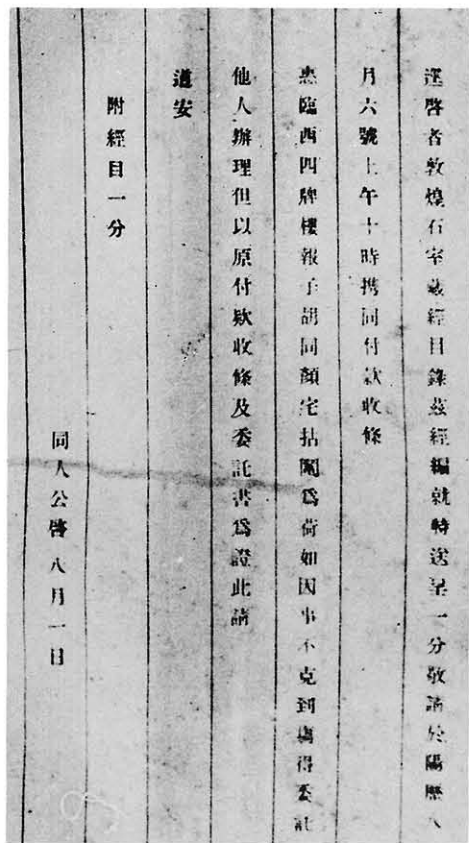 逕啓者敦煌石室藏經目錄茲經編就特送呈一分敬請於陽歷八
月六號上午十時携同付款收條
惠臨西四牌樓報子胡同顏宅拈鬮爲荷如因事不克到場得委託
他人辦理但以原付欵收條及委託書爲證此請
道安
附經目一分
同人公啓 八月一日